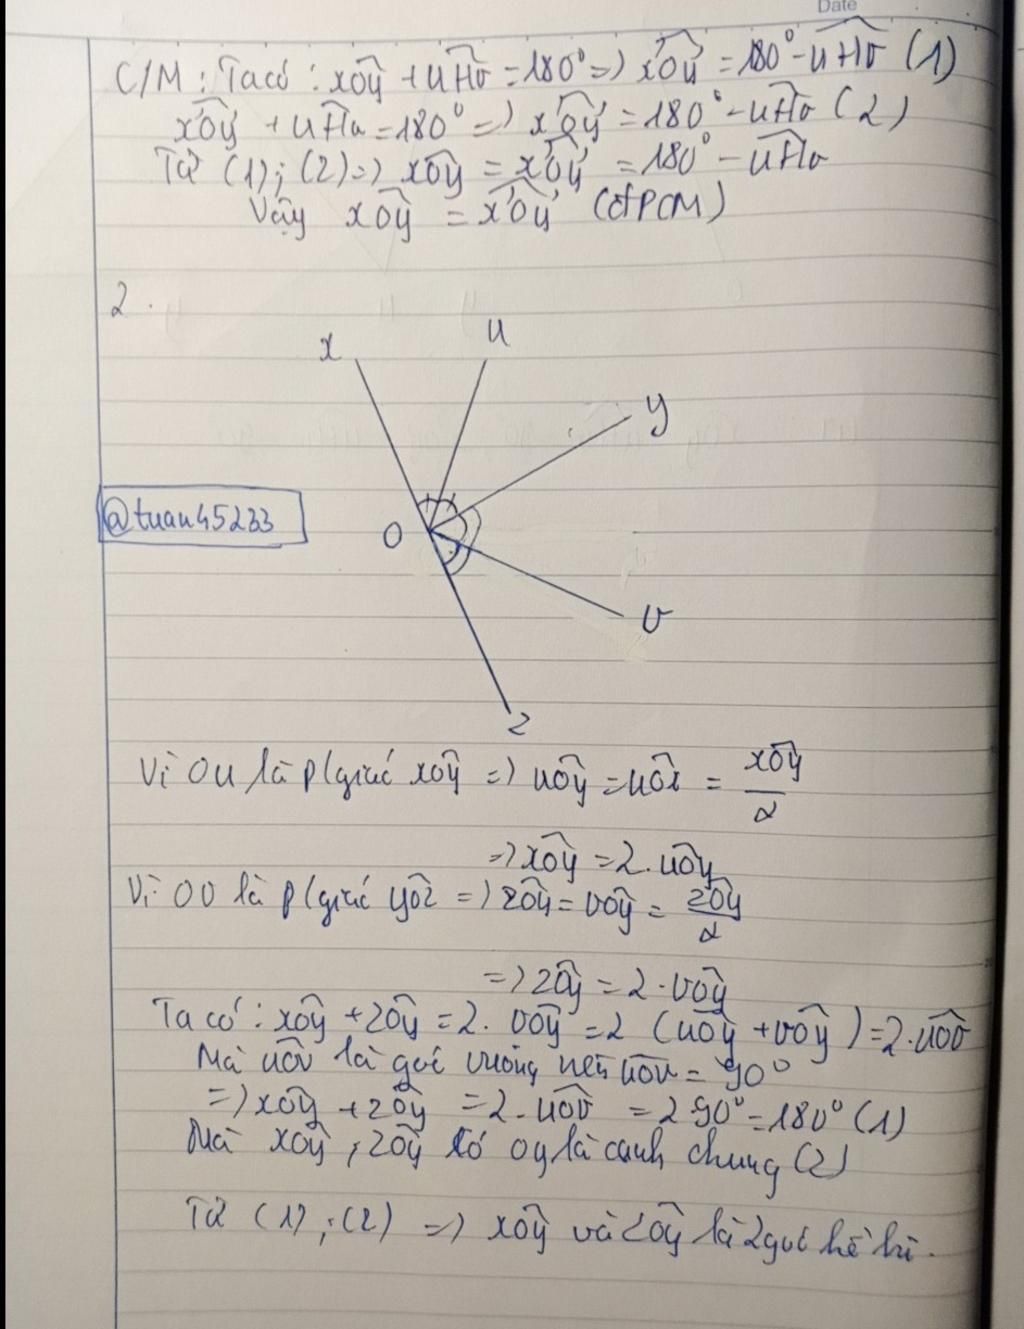 Date
C/M : Ta có : xÔy + uĤv = 180° => xÔy = 180° - uĤv (1)
x'Ôy' + uĤv = 180° => x'Ôy' = 180° - uĤv (2)
Từ (1); (2) => xÔy = x'Ôy' = 180° - uĤv
Vậy xÔy = x'Ôy' (đPCM)
2.
x
u
y
@tuan45233
O
v
z
Vì Ou là p/giác xÔy => uÔy = uÔx = xÔy/2
=> xÔy = 2. uÔy
Vì Ov là p/giác yÔz => zÔy = vÔy = zÔy/2
=> zÔy = 2. vÔy
Ta có : xÔy + zÔy = 2. vÔy = 2 (uÔy + vÔy) = 2. uÔv
Mà uÔv là góc vuông nên uÔv = 90°
=> xÔy + zÔy = 2. uÔv = 2 90° = 180° (1)
Mà xÔy, zÔy có Oy là cạnh chung (2)
Từ (1); (2) => xÔy và zÔy là 2 góc kề bù.